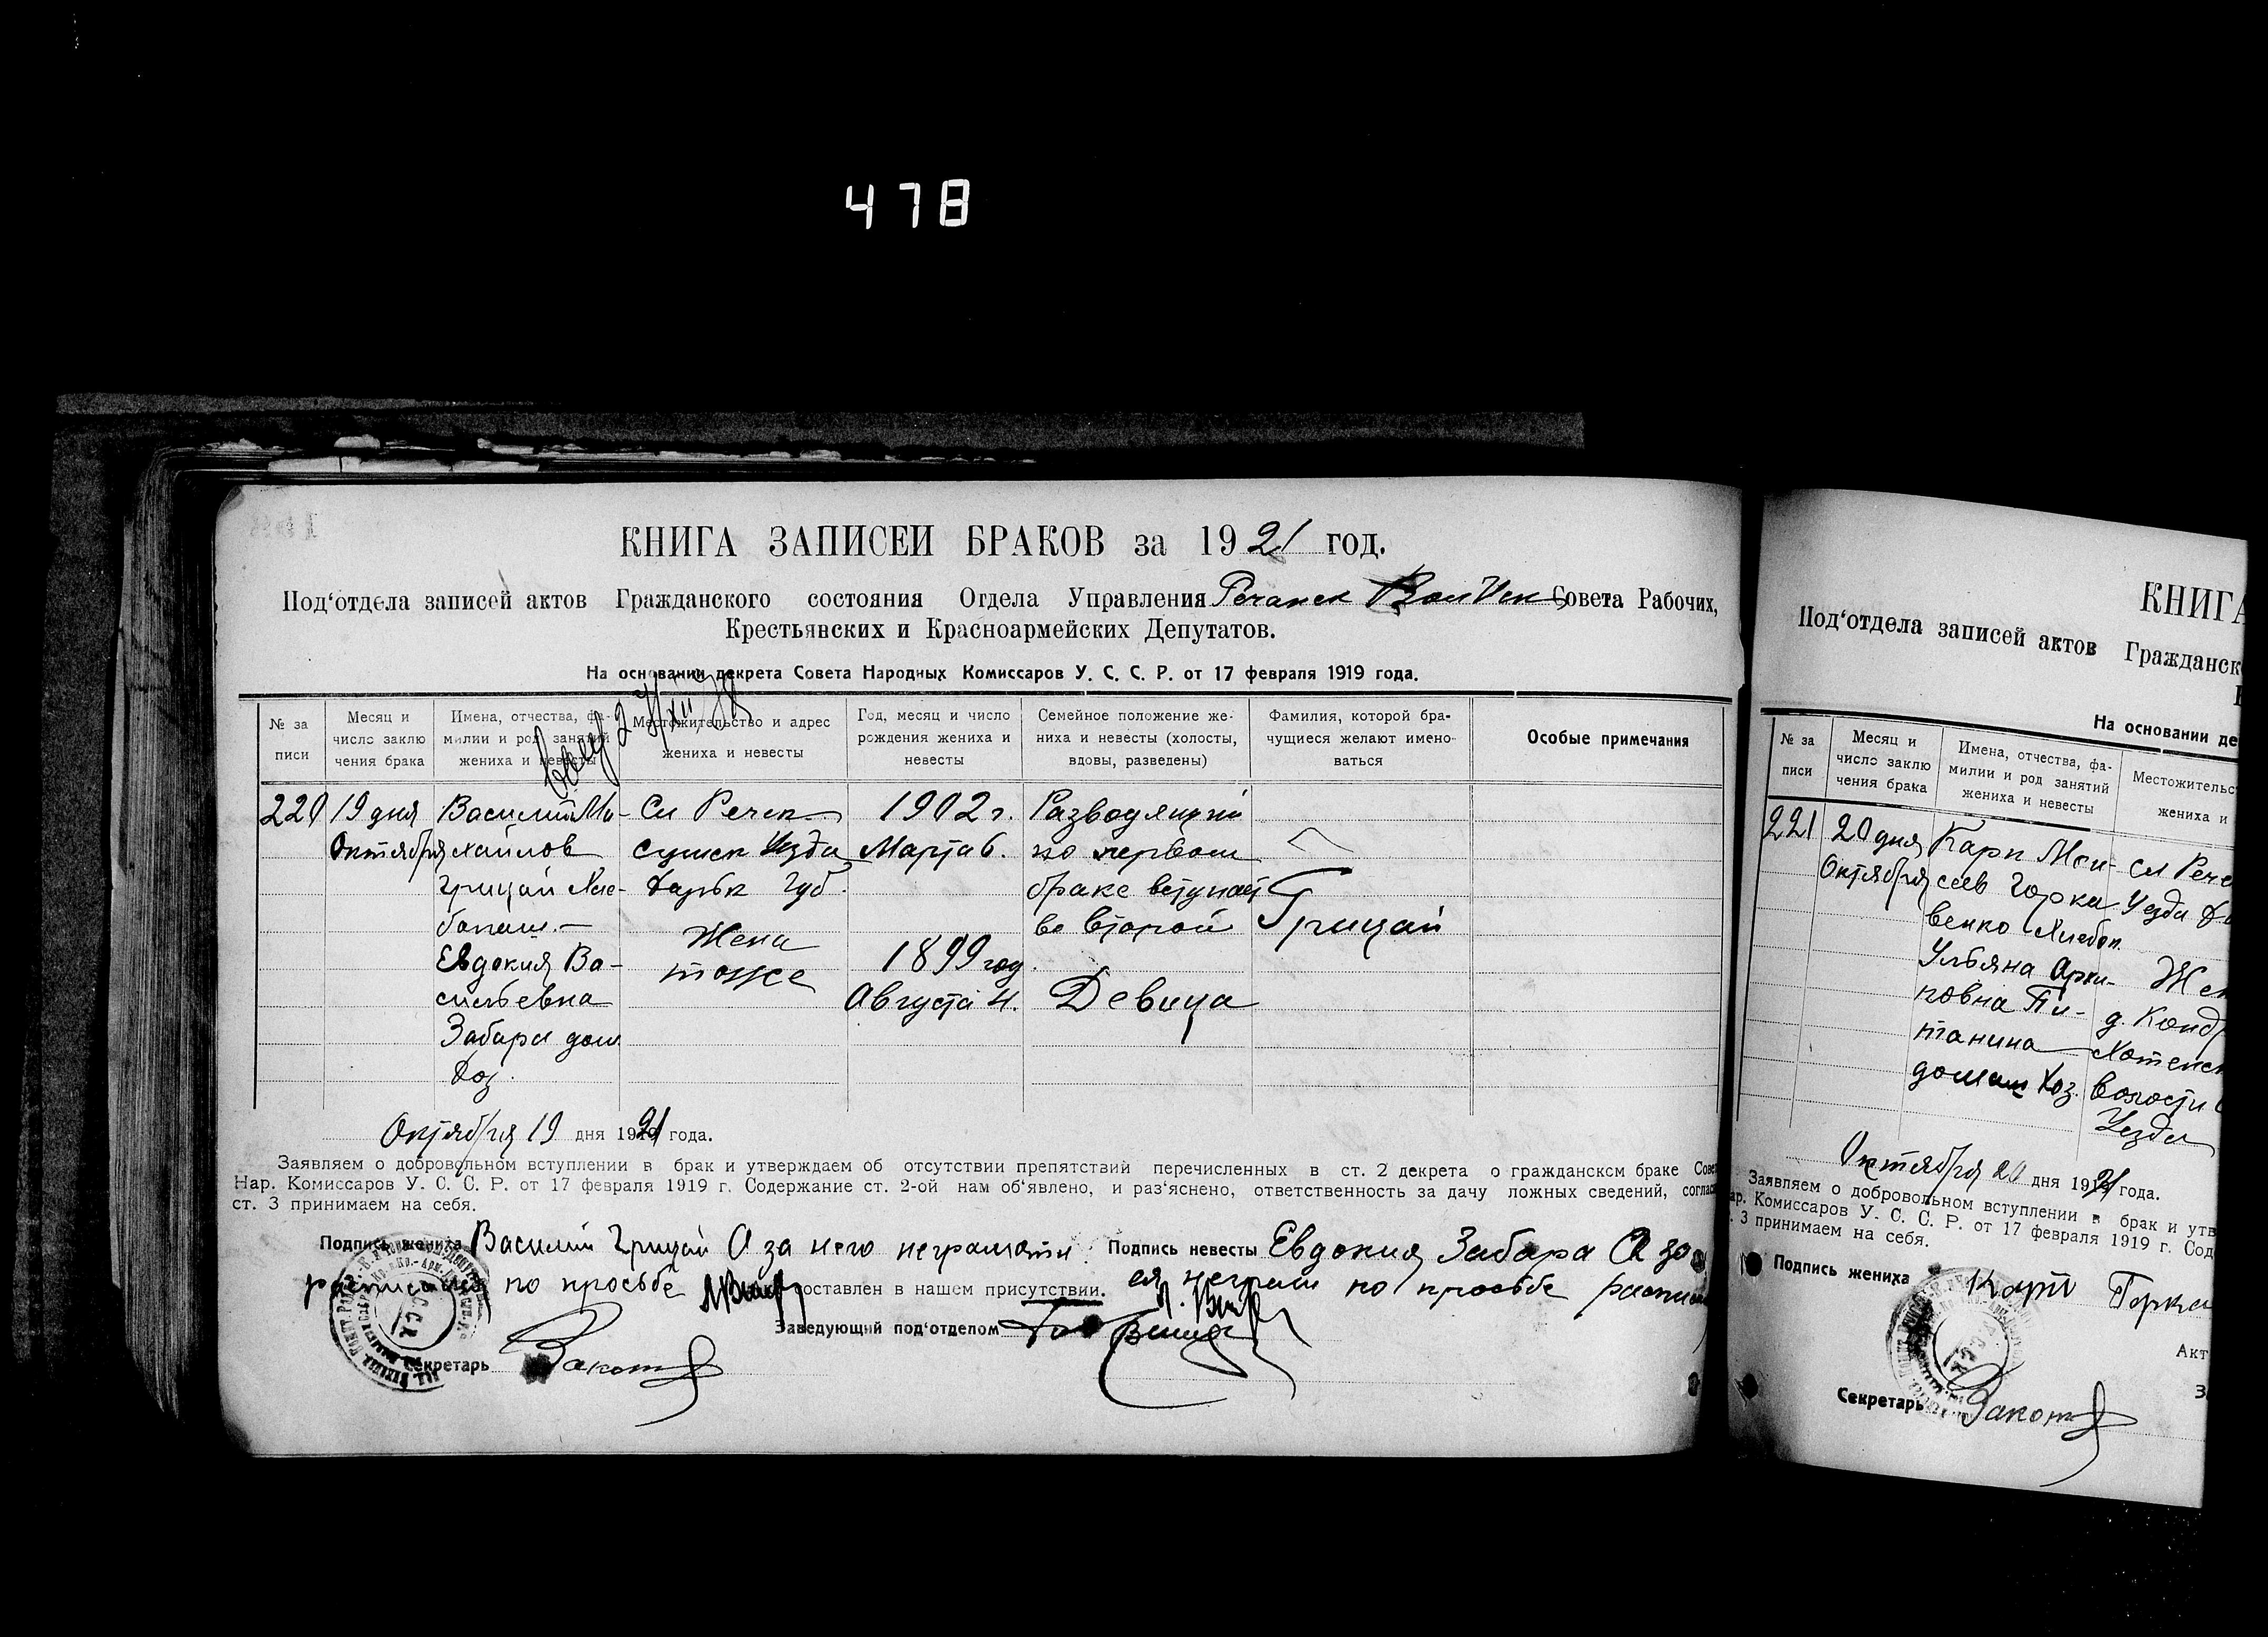 478
КНИГА ЗАПИСЕЙ БРАКОВ за 1921 год.
Под‘отдела записей актов Гражданского состояния Отдела Управления Речанск Совета Рабочих,
Крестьянских и Красноармейских Депутатов.
На основании декрета Совета Народных Комиссаров У. С. С. Р. от 17 февраля 1919 года.
№ за
писи
Месяц и
число заклю
чения брака
Имена, отчества, фа-
милии и род занятий
жениха и невесты
Местожительство и адрес
жениха и невесты
Год, месяц и число
рождения жениха и
невесты
Семейное положение же-
ниха и невесты (холосты,
вдовы, разведены)
Фамилия, которой бра-
чущиеся желают имено-
ваться
Особые примечания
220
19 дня
Октября
Василий Ми-
хайлов
Грицай Хле-
бопаш.
Евдокия Ва-
сильевна
Забара дом
хоз.
Сл Речек
Сумск Уезда
Харьк Губ.
Жена
тоже
1902 г.
Марта 6.
1899 год
Августа 4.
Разводящий
по первом
браке вступает
во второй
Девица
Грицай
Октября 19 дня 1921 года.
Заявляем о добровольном вступлении в брак и утверждаем об отсутствии препятствий перечисленных в ст. 2 декрета о гражданском браке Сове
Нар. Комиссаров У. С. С. Р. от 17 февраля 1919 г. Содержание ст. 2-ой нам об‘явлено, и раз‘яснено, ответственность за дачу ложных сведений, соглас
ст. 3 принимаем на себя.
Подпись жениха Василий Грицай А за него неграмотн.
по просьбе
Подпись невесты Евдокия Забара А за
ея неграм по просьбе распис
составлен в нашем присутствии.
Заведующий под‘отделом
Секретарь
КНИГА
Под‘отдела записей актов Гражданск
На основании де
№ за
писи
Месяц и
число заклю
чения брака
Имена, отчества, фа-
милии и род занятий
жениха и невесты
Местожительс
жениха и
221
20 дня
Октября
Карп Мои-
сеев Горка
венко Хлебоп.
Ульяна Архи-
повна Пи-
танина
домаш хоз.
Сл Рече
Уезда
Жен
д. Конд
Хотенск
волости
Уезда
Октября 20 дня 1921 года.
Заявляем о добровольном вступлении в брак и утв
ар. Комиссаров У. С. С. Р. от 17 февраля 1919 г. Сод
. 3 принимаем на себя.
Подпись жениха Карп Горка
Акт
З
Секретарь